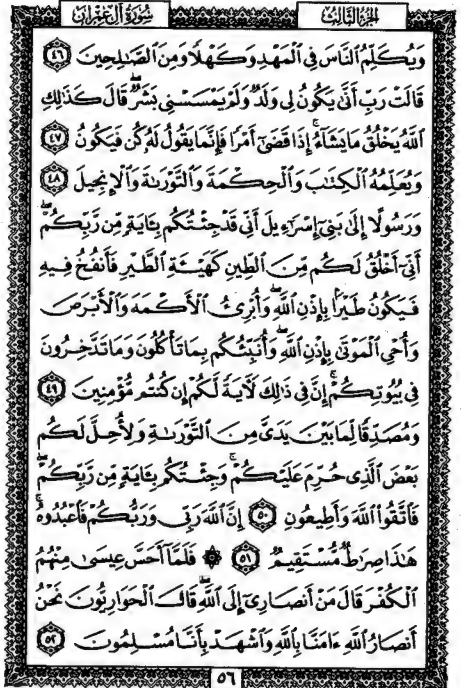 الجزء الثالث
سورة آل عمران
وَيُكَلِّمُ ٱلنَّاسَ فِي ٱلْمَهْدِ وَكَهْلًا وَمِنَ ٱلصَّٰلِحِينَ ٤٦
قَالَتْ رَبِّ أَنَّىٰ يَكُونُ لِي وَلَدٌ وَلَمْ يَمْسَسْنِي بَشَرٌ ۖ قَالَ كَذَٰلِكِ
ٱللَّهُ يَخْلُقُ مَا يَشَآءُ ۚ إِذَا قَضَىٰٓ أَمْرًا فَإِنَّمَا يَقُولُ لَهُۥ كُن فَيَكُونُ ٤٧
وَيُعَلِّمُهُ ٱلْكِتَٰبَ وَٱلْحِكْمَةَ وَٱلتَّوْرَىٰةَ وَٱلْإِنجِيلَ ٤٨
وَرَسُولًا إِلَىٰ بَنِيٓ إِسْرَٰٓءِيلَ أَنِّي قَدْ جِئْتُكُم بِـَٔايَةٍ مِّن رَّبِّكُمْ ۖ
أَنِّيٓ أَخْلُقُ لَكُم مِّنَ ٱلطِّينِ كَهَيْـَٔةِ ٱلطَّيْرِ فَأَنفُخُ فِيهِ
فَيَكُونُ طَيْرًۢا بِإِذْنِ ٱللَّهِ ۖ وَأُبْرِئُ ٱلْأَكْمَهَ وَٱلْأَبْرَصَ
وَأُحْيِ ٱلْمَوْتَىٰ بِإِذْنِ ٱللَّهِ ۖ وَأُنَبِّئُكُم بِمَا تَأْكُلُونَ وَمَا تَدَّخِرُونَ
فِي بُيُوتِكُمْ ۚ إِنَّ فِي ذَٰلِكَ لَـَٔايَةً لَّكُمْ إِن كُنتُم مُّؤْمِنِينَ ٤٩
وَمُصَدِّقًا لِّمَا بَيْنَ يَدَيَّ مِنَ ٱلتَّوْرَىٰةِ وَلِأُحِلَّ لَكُم
بَعْضَ ٱلَّذِي حُرِّمَ عَلَيْكُمْ ۚ وَجِئْتُكُم بِـَٔايَةٍ مِّن رَّبِّكُمْ
فَٱتَّقُوا۟ ٱللَّهَ وَأَطِيعُونِ ٥٠ إِنَّ ٱللَّهَ رَبِّي وَرَبُّكُمْ فَٱعْبُدُوهُ ۗ
هَٰذَا صِرَٰطٌ مُّسْتَقِيمٌ ٥١ ۞ فَلَمَّآ أَحَسَّ عِيسَىٰ مِنْهُمُ
ٱلْكُفْرَ قَالَ مَنْ أَنصَارِيٓ إِلَى ٱللَّهِ ۖ قَالَ ٱلْحَوَارِيُّونَ نَحْنُ
أَنصَارُ ٱللَّهِ ءَامَنَّا بِٱللَّهِ وَٱشْهَدْ بِأَنَّا مُسْلِمُونَ ٥٢
٥٦